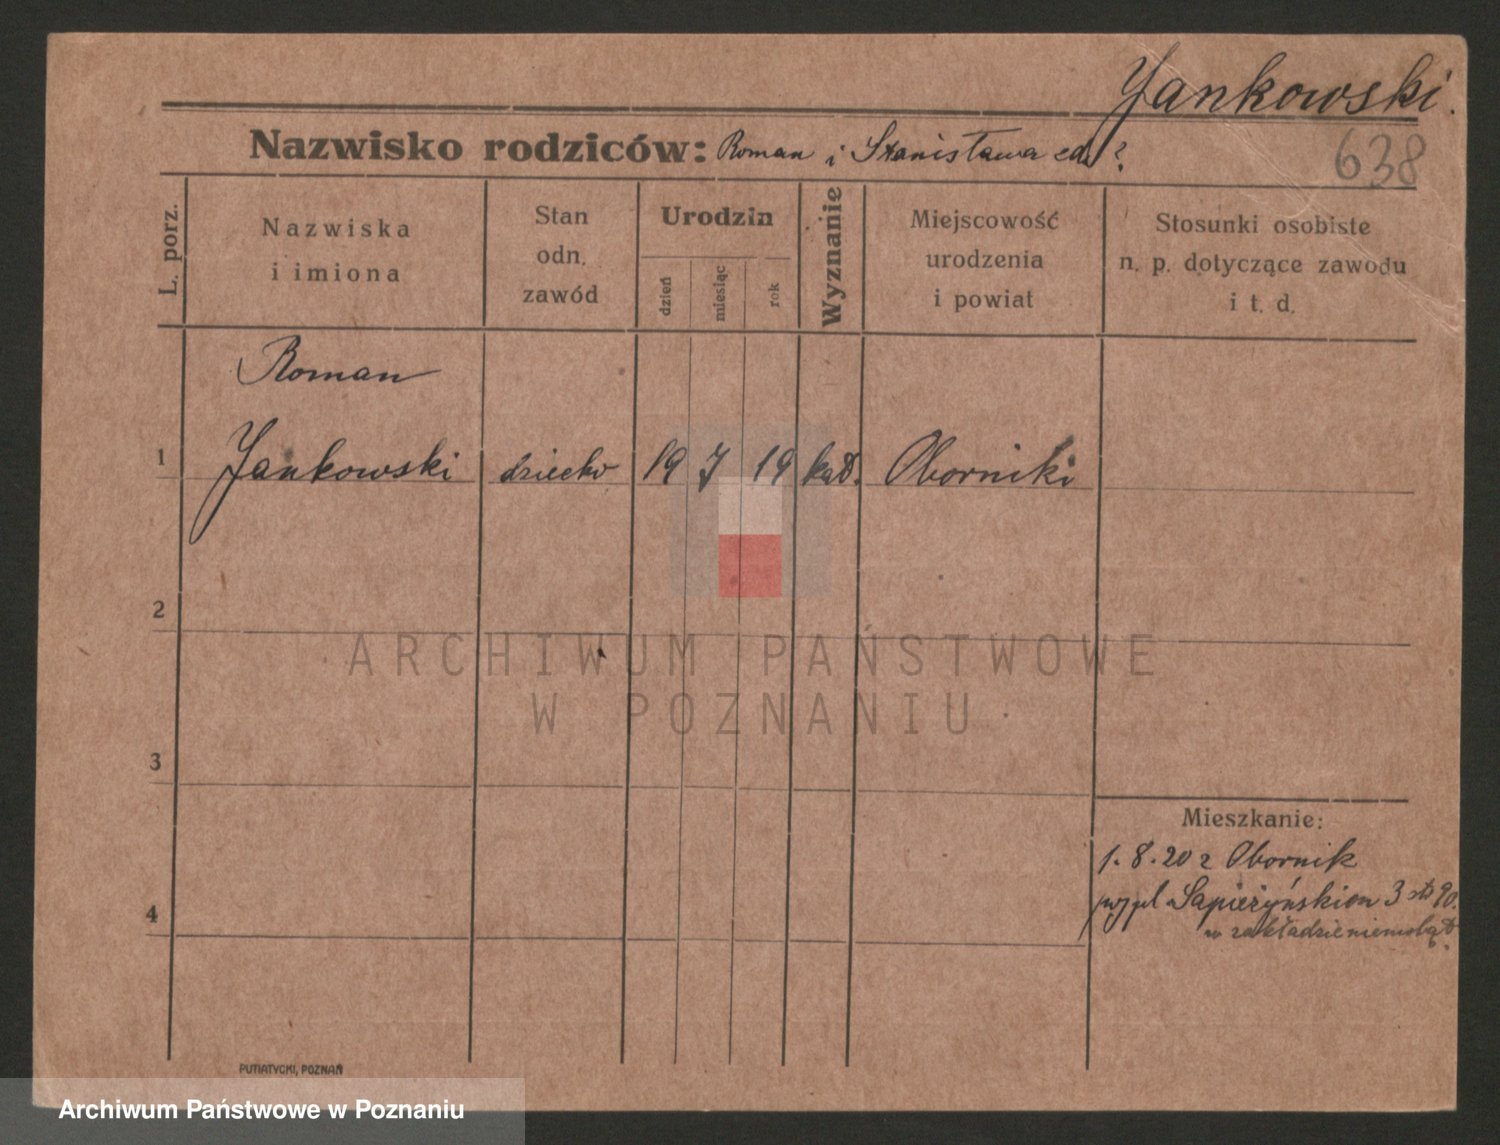 Jankowski.
638
Nazwisko rodziców: Roman i Stanisława zd. ?
L. porz.
Nazwiska
i imiona
Stan
odn.
zawód
Urodzin
dzień
miesiąc
rok
Wyznanie
Miejscowość
urodzenia
i powiat
Stosunki osobiste
n. p. dotyczące zawodu
i t. d.
Roman
1 Jankowski dziecko 19 7 19 kat. Oborniki
2
ARCHIWUM PAŃSTWOWE
W POZNANIU
3
Mieszkanie:
1. 8. 20 z Obornik
pl Sapieżyńskim 3
w zakładzie niemoląt
4
PUTIATYCKI, POZNAŃ
Archiwum Państwowe w Poznaniu